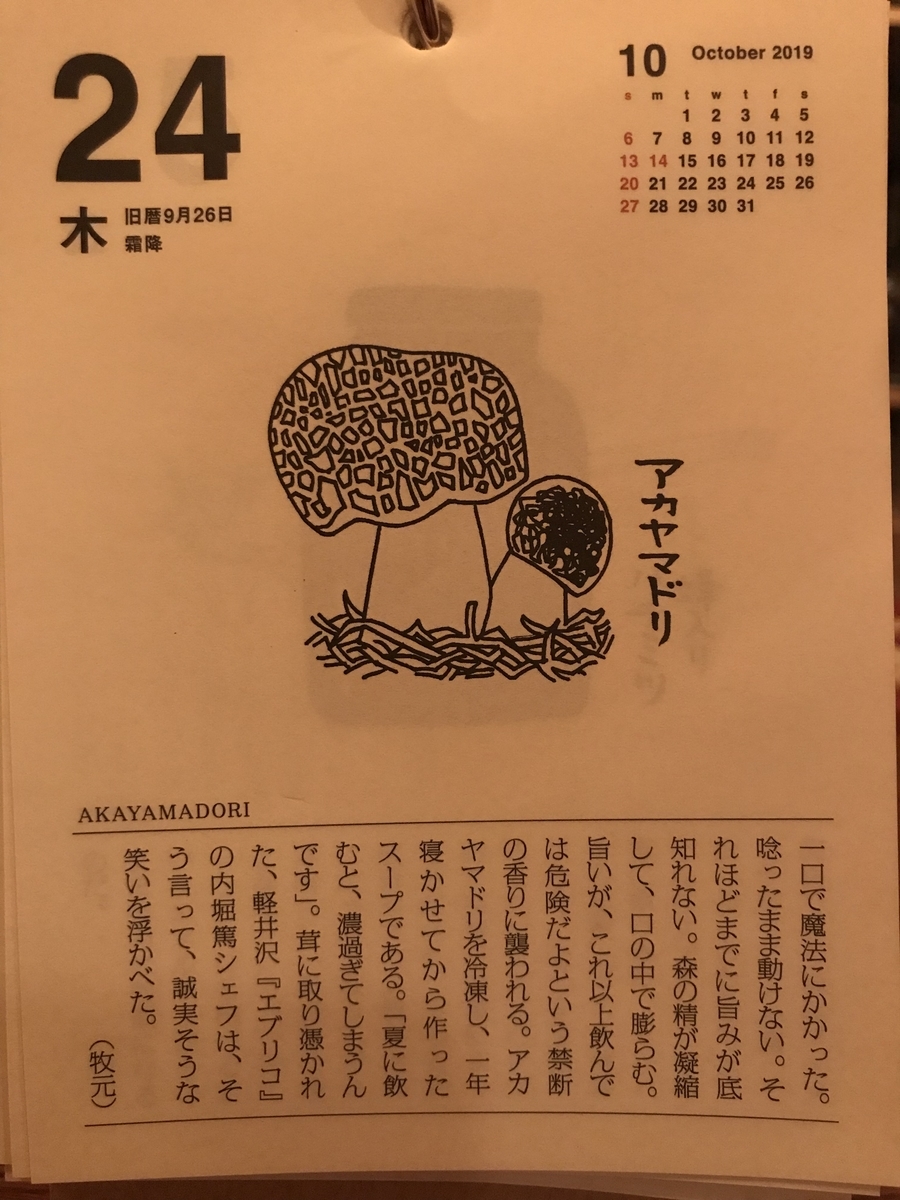 24
木
旧暦9月26日
霜降
10 October 2019
s m t w t f s
1 2 3 4 5
6 7 8 9 10 11 12
13 14 15 16 17 18 19
20 21 22 23 24 25 26
27 28 29 30 31
アカヤマドリ
AKAYAMADORI
一口で魔法にかかった。
唸ったまま動けない。そ
れほどまでに旨みが底
知れない。森の精が凝縮
して、口の中で膨らむ。
旨いが、これ以上飲んで
は危険だよという禁断
の香りに襲われる。アカ
ヤマドリを冷凍し、一年
寝かせてから作った
スープである。「夏に飲
むと、濃過ぎてしまうん
です」。茸に取り憑かれ
た、軽井沢『エブリコ』
の内堀篤シェフは、そ
う言って、誠実そうな
笑いを浮かべた。
（牧元）